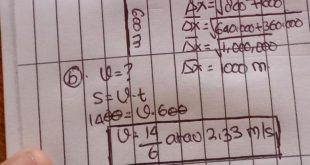 Δx=√800²+600²
600 m
Δx=√640.000+360.000
Δx=√1.000.000
Δx= 1000 m
b) v=?
S=v.t
1400=v.600
v=14/6 atau 2,33 m/s